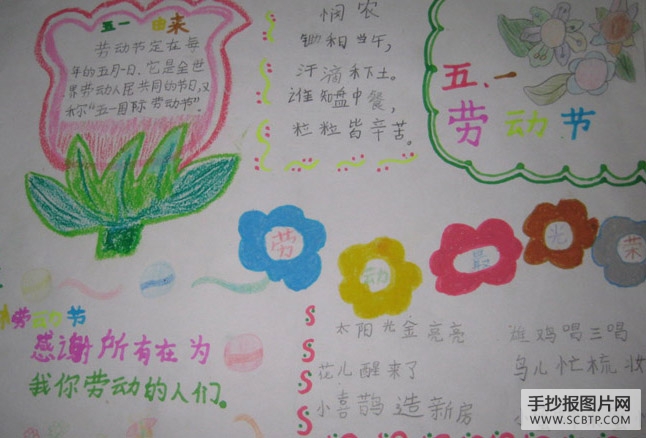 五一 由来
劳动节定在每
年的五月一日、它是全世
界劳动人民共同的节日,又
称“五一国际劳动节”.
悯农
锄禾日当午,
汗滴禾下土。
谁知盘中餐,
粒粒皆辛苦。
五、一
劳动节
劳动最光荣
劳动节
感谢所有在为
我你劳动的人们。
太阳光金亮亮 雄鸡唱三唱
花儿醒来了 鸟儿忙梳妆
小喜鹊造新房
手抄报图片网
WWW.SCBTP.COM